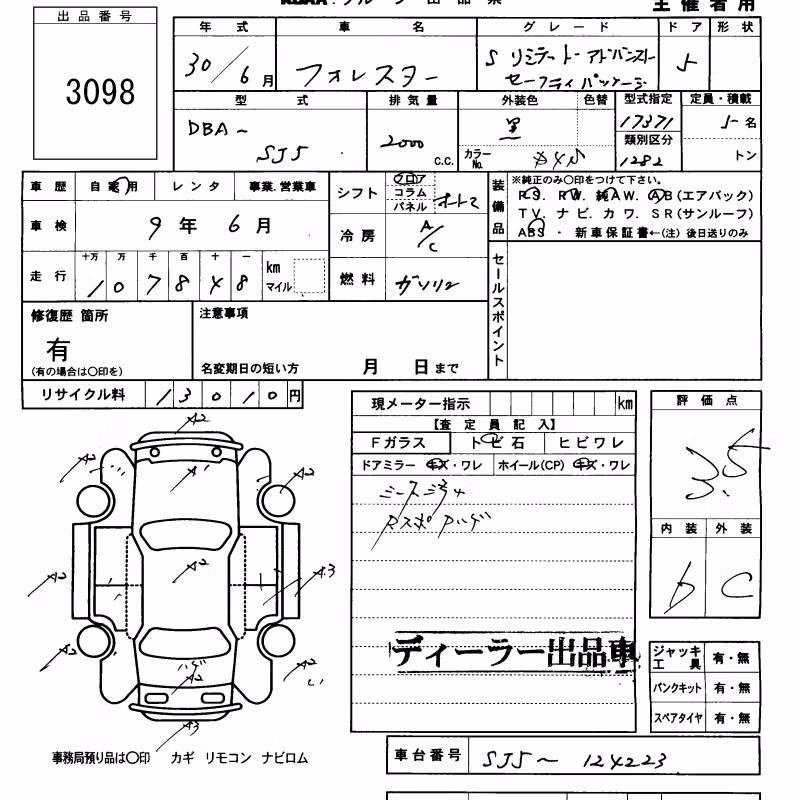 主催者用
出品番号
3098
年式 車名 グレード ドア 形状
30/6月 フォレスター Sリミテッド アドバンスト
セーフティパッケージ 5
型式 排気量 外装色 色替 型式指定 定員・積載
DBA- 2000 C.C. 黒 17371 5名
SJ5 カラーNo. D4S 類別区分 トン
1282
車歴 自家用 レンタ 事業.営業車 シフト フロア
コラム
パネル オートマ
装備品 ※純正のみ〇印をつけて下さい。
P.S. P.W. 純AW. AB(エアバック)
TV. ナビ. カワ. SR(サンルーフ)
ABS ・ 新車保証書←(注)後日送りのみ
車検 9年 6月 冷房 A/C
走行 十万 万 千 百 十 一
107848 km
マイル 燃料 ガソリン
セールスポイント
修復歴 箇所 注意事項
有
(有の場合は〇印を) 名変期日の短い方 月 日まで
リサイクル料 13010円
現メーター指示 km
【査定員記入】
Fガラス トビ石 ヒビワレ
ドアミラー キズ・ワレ ホイール(CP) キズ・ワレ
評価点
3.5
内装 外装
b C
A2
A2 A1 A2
A2 A2 A3
A2 ハゲ A2
A2
A3
ディーラー出品車
ジャッキ工具 有・無
パンクキット 有・無
スペアタイヤ 有・無
事務局預り品は〇印 カギ リモコン ナビロム
車台番号 SJ5-124223